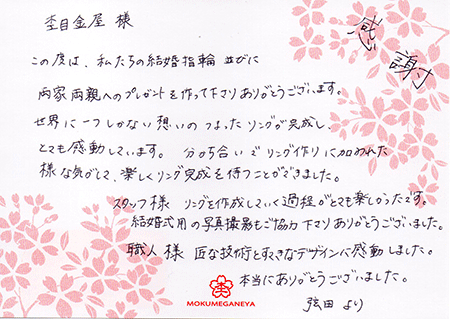 杢目金屋 様
感謝
この度は、私たちの結婚指輪 並びに
両家両親へのプレゼントを作って下さりありがとうございます。
世界に一つしかない想いのつまったリングが完成し、
とても感動しています。 分かち合いでリング作りに加われた
様な気がして、楽しくリング完成を待つことができました。
スタッフ様 リングを作成していく過程がとても楽しかったです。
結婚式用の写真撮影もご協力下さりありがとうございました。
職人様 匠な技術とすてきなデザインに感動しました。
本当にありがとうございました。
MOKUMEGANEYA
弦田 より